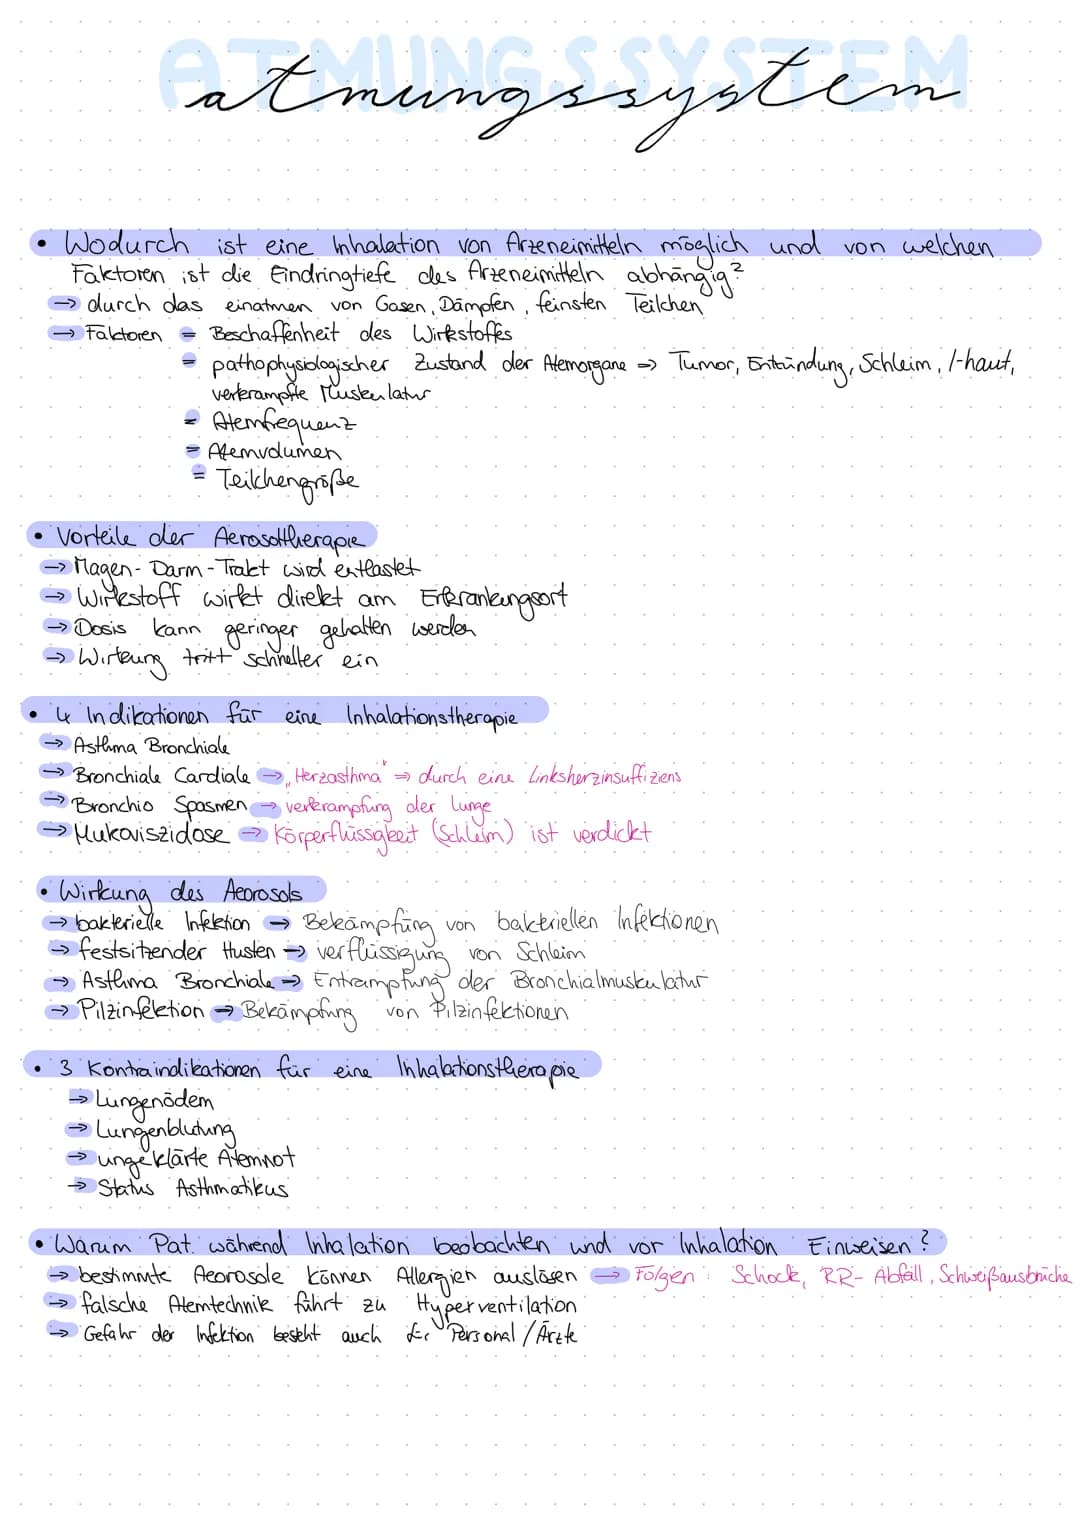 ATMUNGSSYSTEM
atmungssystem
• Wodurch ist eine Inhalation von Arzeneimitteln möglich und von welchen
Faktoren ist die Eindringtiefe des Arzeneimitteln abhängig?
→ durch das einatmen von Gasen, Dämpfen, feinsten Teilchen
→ Faktoren = Beschaffenheit des Wirkstoffes
= pathophysiologischer Zustand der Atemorgane => Tumor, Entzündung, Schleim, /-haut,
verkrampfte Muskulatur
= Atemfrequenz
= Atemvolumen
= Teilchengröße
• Vorteile der Aerosoltherapie
→ Magen-Darm-Trakt wird entlastet
→ Wirkstoff wirkt direkt am Erkrankungsort
→ Dosis kann geringer gehalten werden
→ Wirkung tritt schneller ein
• 4 Indikationen für eine Inhalationstherapie
→ Asthma Bronchiale
→ Bronchiale Cardiale → „Herzasthma" => durch eine Linksherzinsuffiziens
→ Bronchio Spasmen → verkrampfung der Lunge
→ Mukoviszidose → Körperflüssigkeit (Schleim) ist verdickt
• Wirkung des Aeorosols
→ bakterielle Infektion → Bekämpfung von bakteriellen Infektionen
→ festsitzender Husten → verflüssigung von Schleim
→ Asthma Bronchiale → Entrampfung der Bronchialmuskulatur
→ Pilzinfektion → Bekämpfung von Pilzinfektionen
• 3 Kontraindikationen für eine Inhalationstherapie
→ Lungenödem
→ Lungenblutung
→ ungeklärte Atemnot
→ Status Asthmatikus
• Warum Pat. während Inhalation beobachten und vor Inhalation Einweisen?
→ bestimmte Aeorosole können Allergien auslösen → Folgen: Schock, RR-Abfall, Schweißausbrüche
→ falsche Atemtechnik führt zu Hyperventilation
→ Gefahr der Infektion besteht auch für Personal / Ärzte